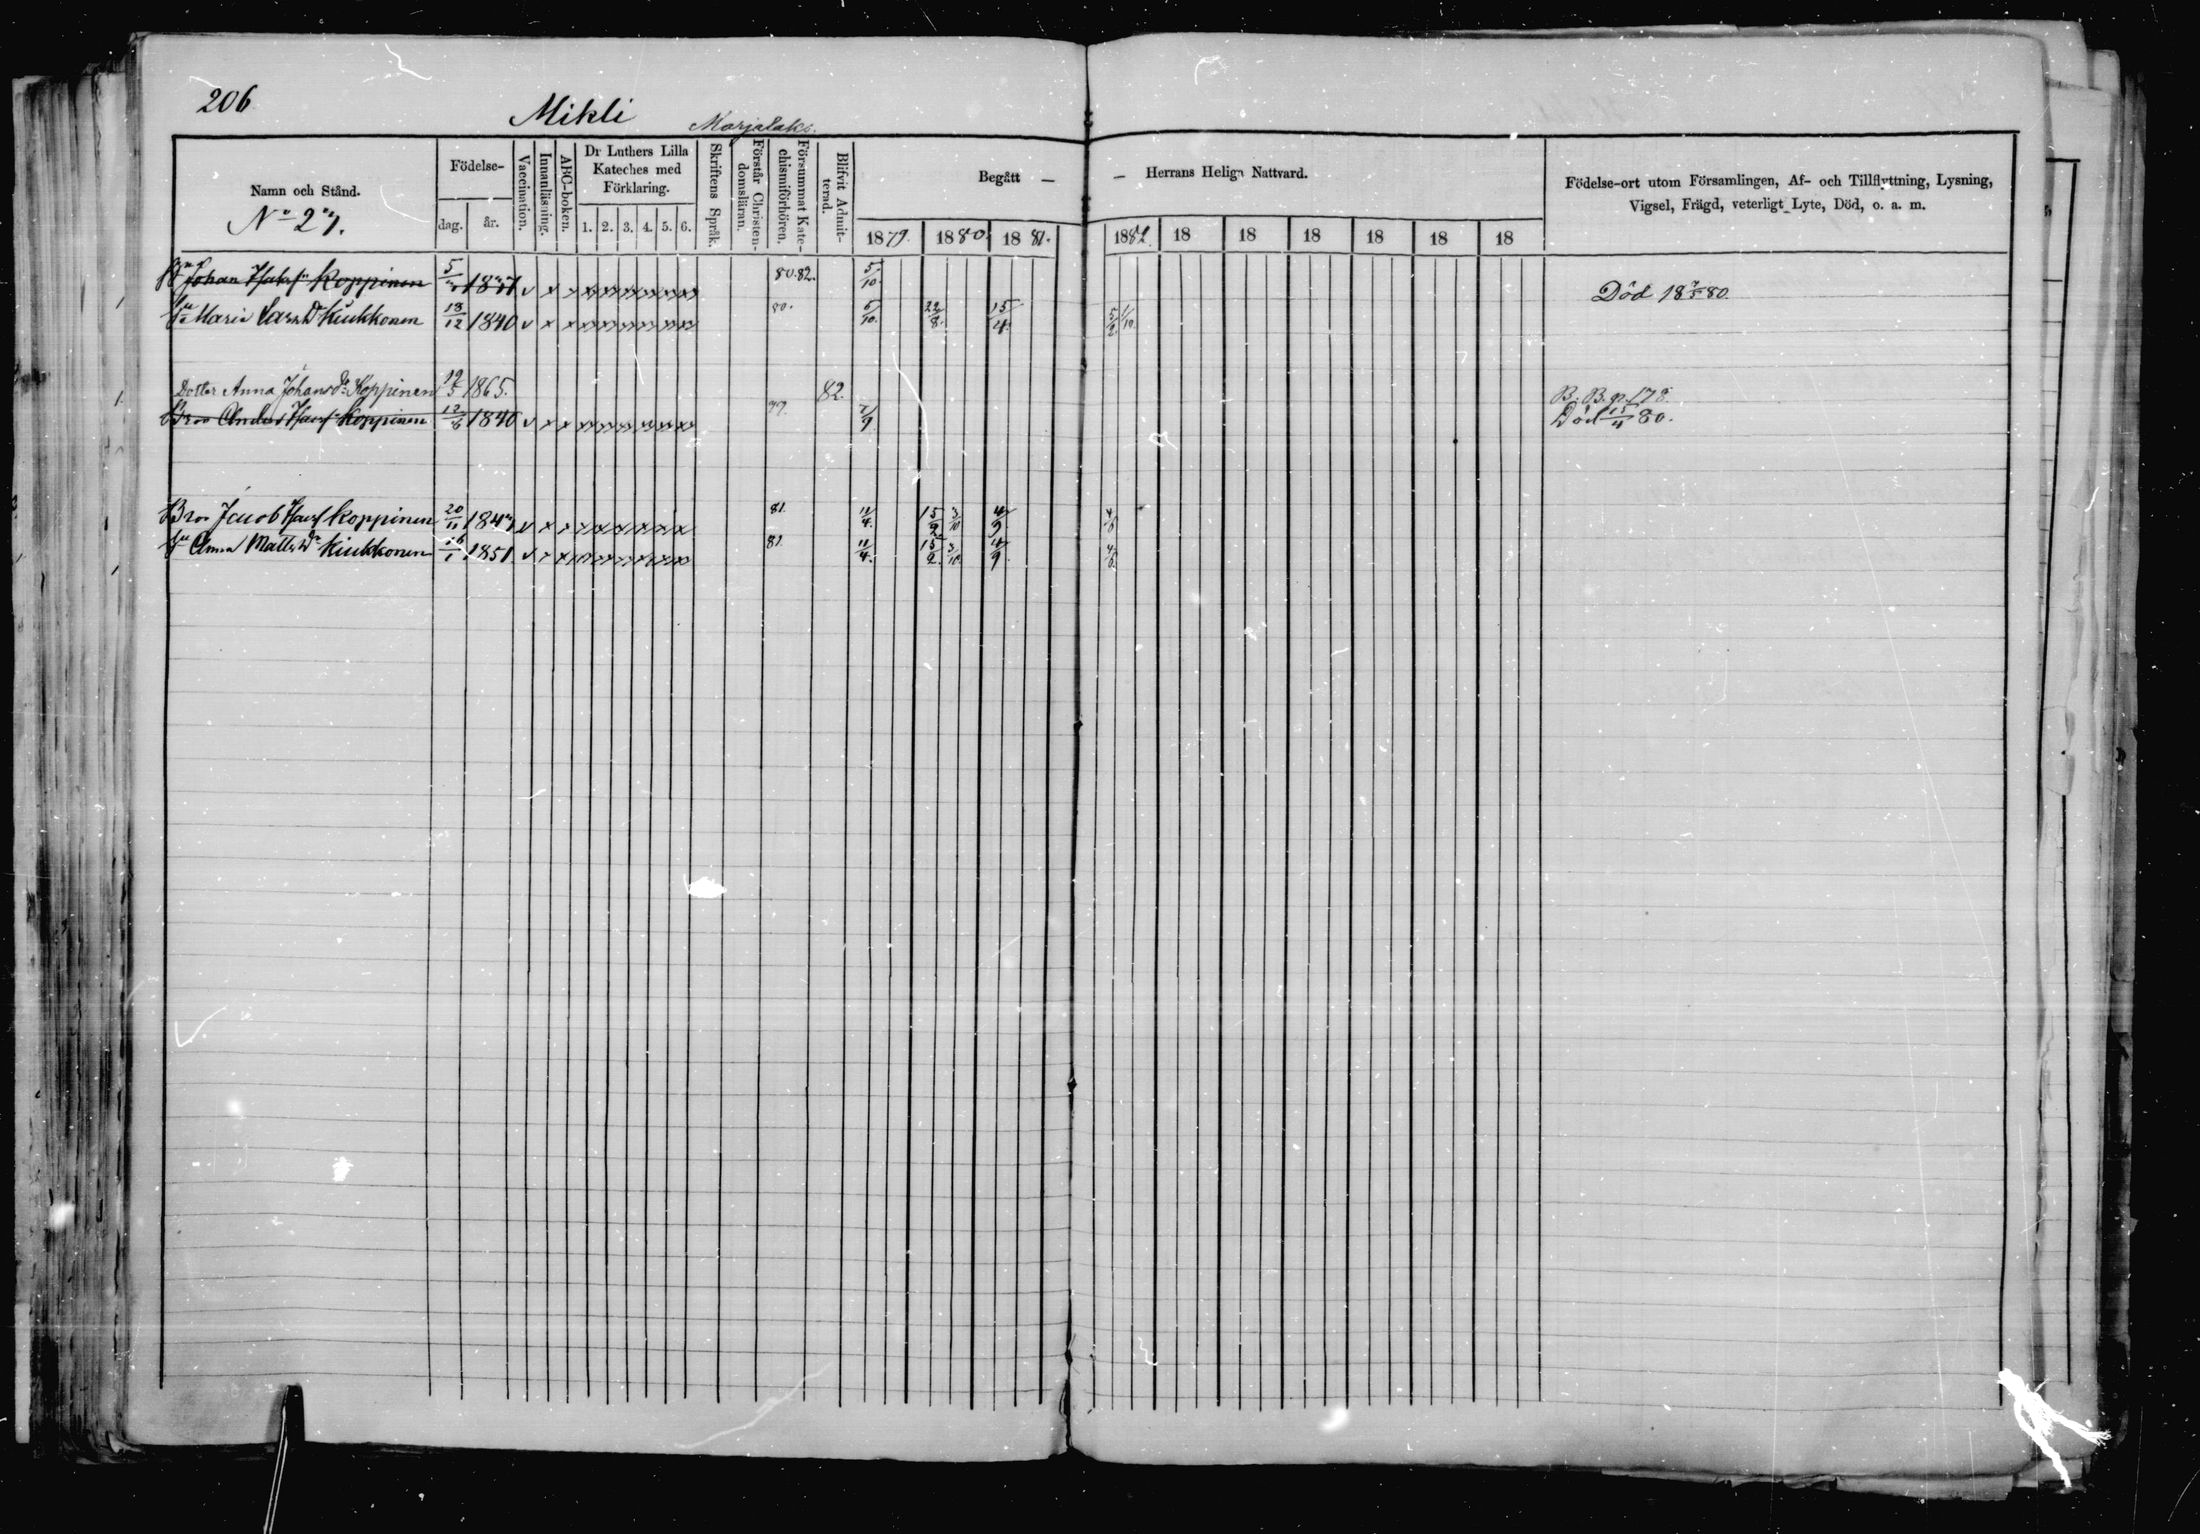 206
Mikli
Marjalaks.
Namn och Stånd.
No 27.
Födelse-
dag. år.
Vaccination.
Innanläsning.
ABC-boken.
Dr Luthers Lilla Kateches med Förklaring.
1. 2. 3. 4. 5. 6.
Skriftens Språk.
Förstår Christen-domsläran.
Försummat Kate-chismiförhören.
Blifvit Admit-terad.
Begått — — Herrans Heliga Nattvard.
1879. 1880. 1881. 1882. 18 18 18 18 18 18
Födelse-ort utom Församlingen, Af- och Tillflyttning, Lysning,
Vigsel, Frägd, veterligt Lyte, Död, o. a. m.
Johan Koppinen 80.82. 5/10. Död 80.
Maria Larsd Kiukkonen 18/12 1840 80. 5/10. 22/8. 15/4. 5/2. 1/10.
Dotter Anna Johansdr Koppinen 19/5 1865. 82. B. B. p. 178.
Bror Anders Koppinen 12/6 1840 79. 7/9 Död 15/4 80.
Bror Jacob Koppinen 20/11 1847 81. 11/4. 15/2 3/10 4/9. 4/6
Hu Anna Mattsdr Kiukkonen 16/1 1851. 81. 11/4. 15/2. 3/10. 4/9 4/6.